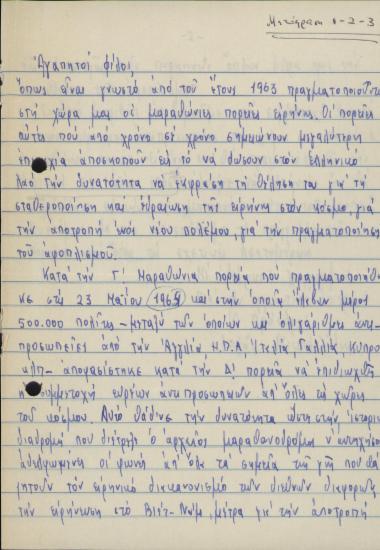 Μετάφραση 1-2-3
Ἀγαπητοί φίλοι,
Ὅπως εἶναι γνωστό ἀπό τοῦ ἔτους 1963 πραγματοποιοῦνται
στή χώρα μας οἱ μαραθώνιες πορεῖες εἰρήνης. Οἱ πορεῖες
αὐτές πού ἀπό χρόνο σέ χρόνο σημειώνουν μεγαλύτερη
ἐπιτυχία ἀποσκοποῦν εἰς τό νά δώσουν στόν ἑλληνικό
λαό τήν δυνατότητα νά ἐκφράση τή θέληση του γιά τή
σταθεροποίηση καί ἑδραίωση τῆς εἰρήνης στόν κόσμο, γιά
τήν ἀποτροπή ἑνός νέου πολέμου, γιά τήν πραγματοποίηση
τοῦ ἀφοπλισμοῦ.
Κατά τήν Γ΄ Μαραθώνια πορεία πού πραγματοποιήθη
κε στίς 23 Μαΐου 1965 καί στήν ὁποία ἔλαβαν μέρος
500.000 πολίτες - μεταξύ τῶν ὁποίων καί ὀλιγάριθμες ἀντι-
προσωπεῖες ἀπό τήν Ἀγγλία Η.Π.Α. Ἰταλία Γαλλία Κύπρο
κλπ- ἀποφασίστηκε κατά τήν Δ΄ πορεία νά ἐπιδιωχθῆ
ἡ συμμετοχή εὐρειῶν ἀντιπροσωπειῶν ἀπ' ὅλες τίς χῶρες
τοῦ κόσμου. Αὐτό θά δίνε τήν δυνατότητα ὥστε στήν ἱστορική
διαδρομή πού διέτρεξε ὁ ἀρχαῖος μαραθωνοδρόμος ν' ἀντηχήσουν
ἀδελφωμένες οἱ φωνές ἀπ' ὅλα τά σημεῖα τῆς γῆς πού θά
ζητοῦν τόν εἰρηνικό διακανονισμό τῶν διεθνῶν διαφορῶν,
τήν εἰρήνευση στό Βιέτ-Νάμ, μέτρα γιά τήν ἀποτροπή